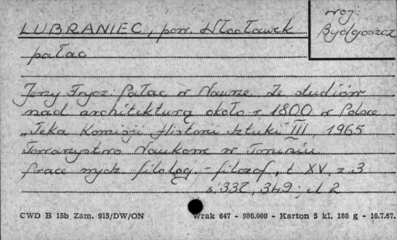 LUBRANIEC, pow. Włocławek
woj.
Bydgoszcz
pałac
Jerzy Frycz: Pałac w Nawrze. Ze studiów
nad architekturą około r. 1800 w Polsce
„Teka Komisji Historii Sztuki" III, 1965
Towarzystwo Naukowe w Toruniu
Prace wydz. filolog.-filozof., t. XV, z. 3
s. 338, 349; il. 2
CWD B 15b Zam. 915/DW/ON Wrak 647 - 950.000 - Karton 5 kl. 180 g - 10.7.67.